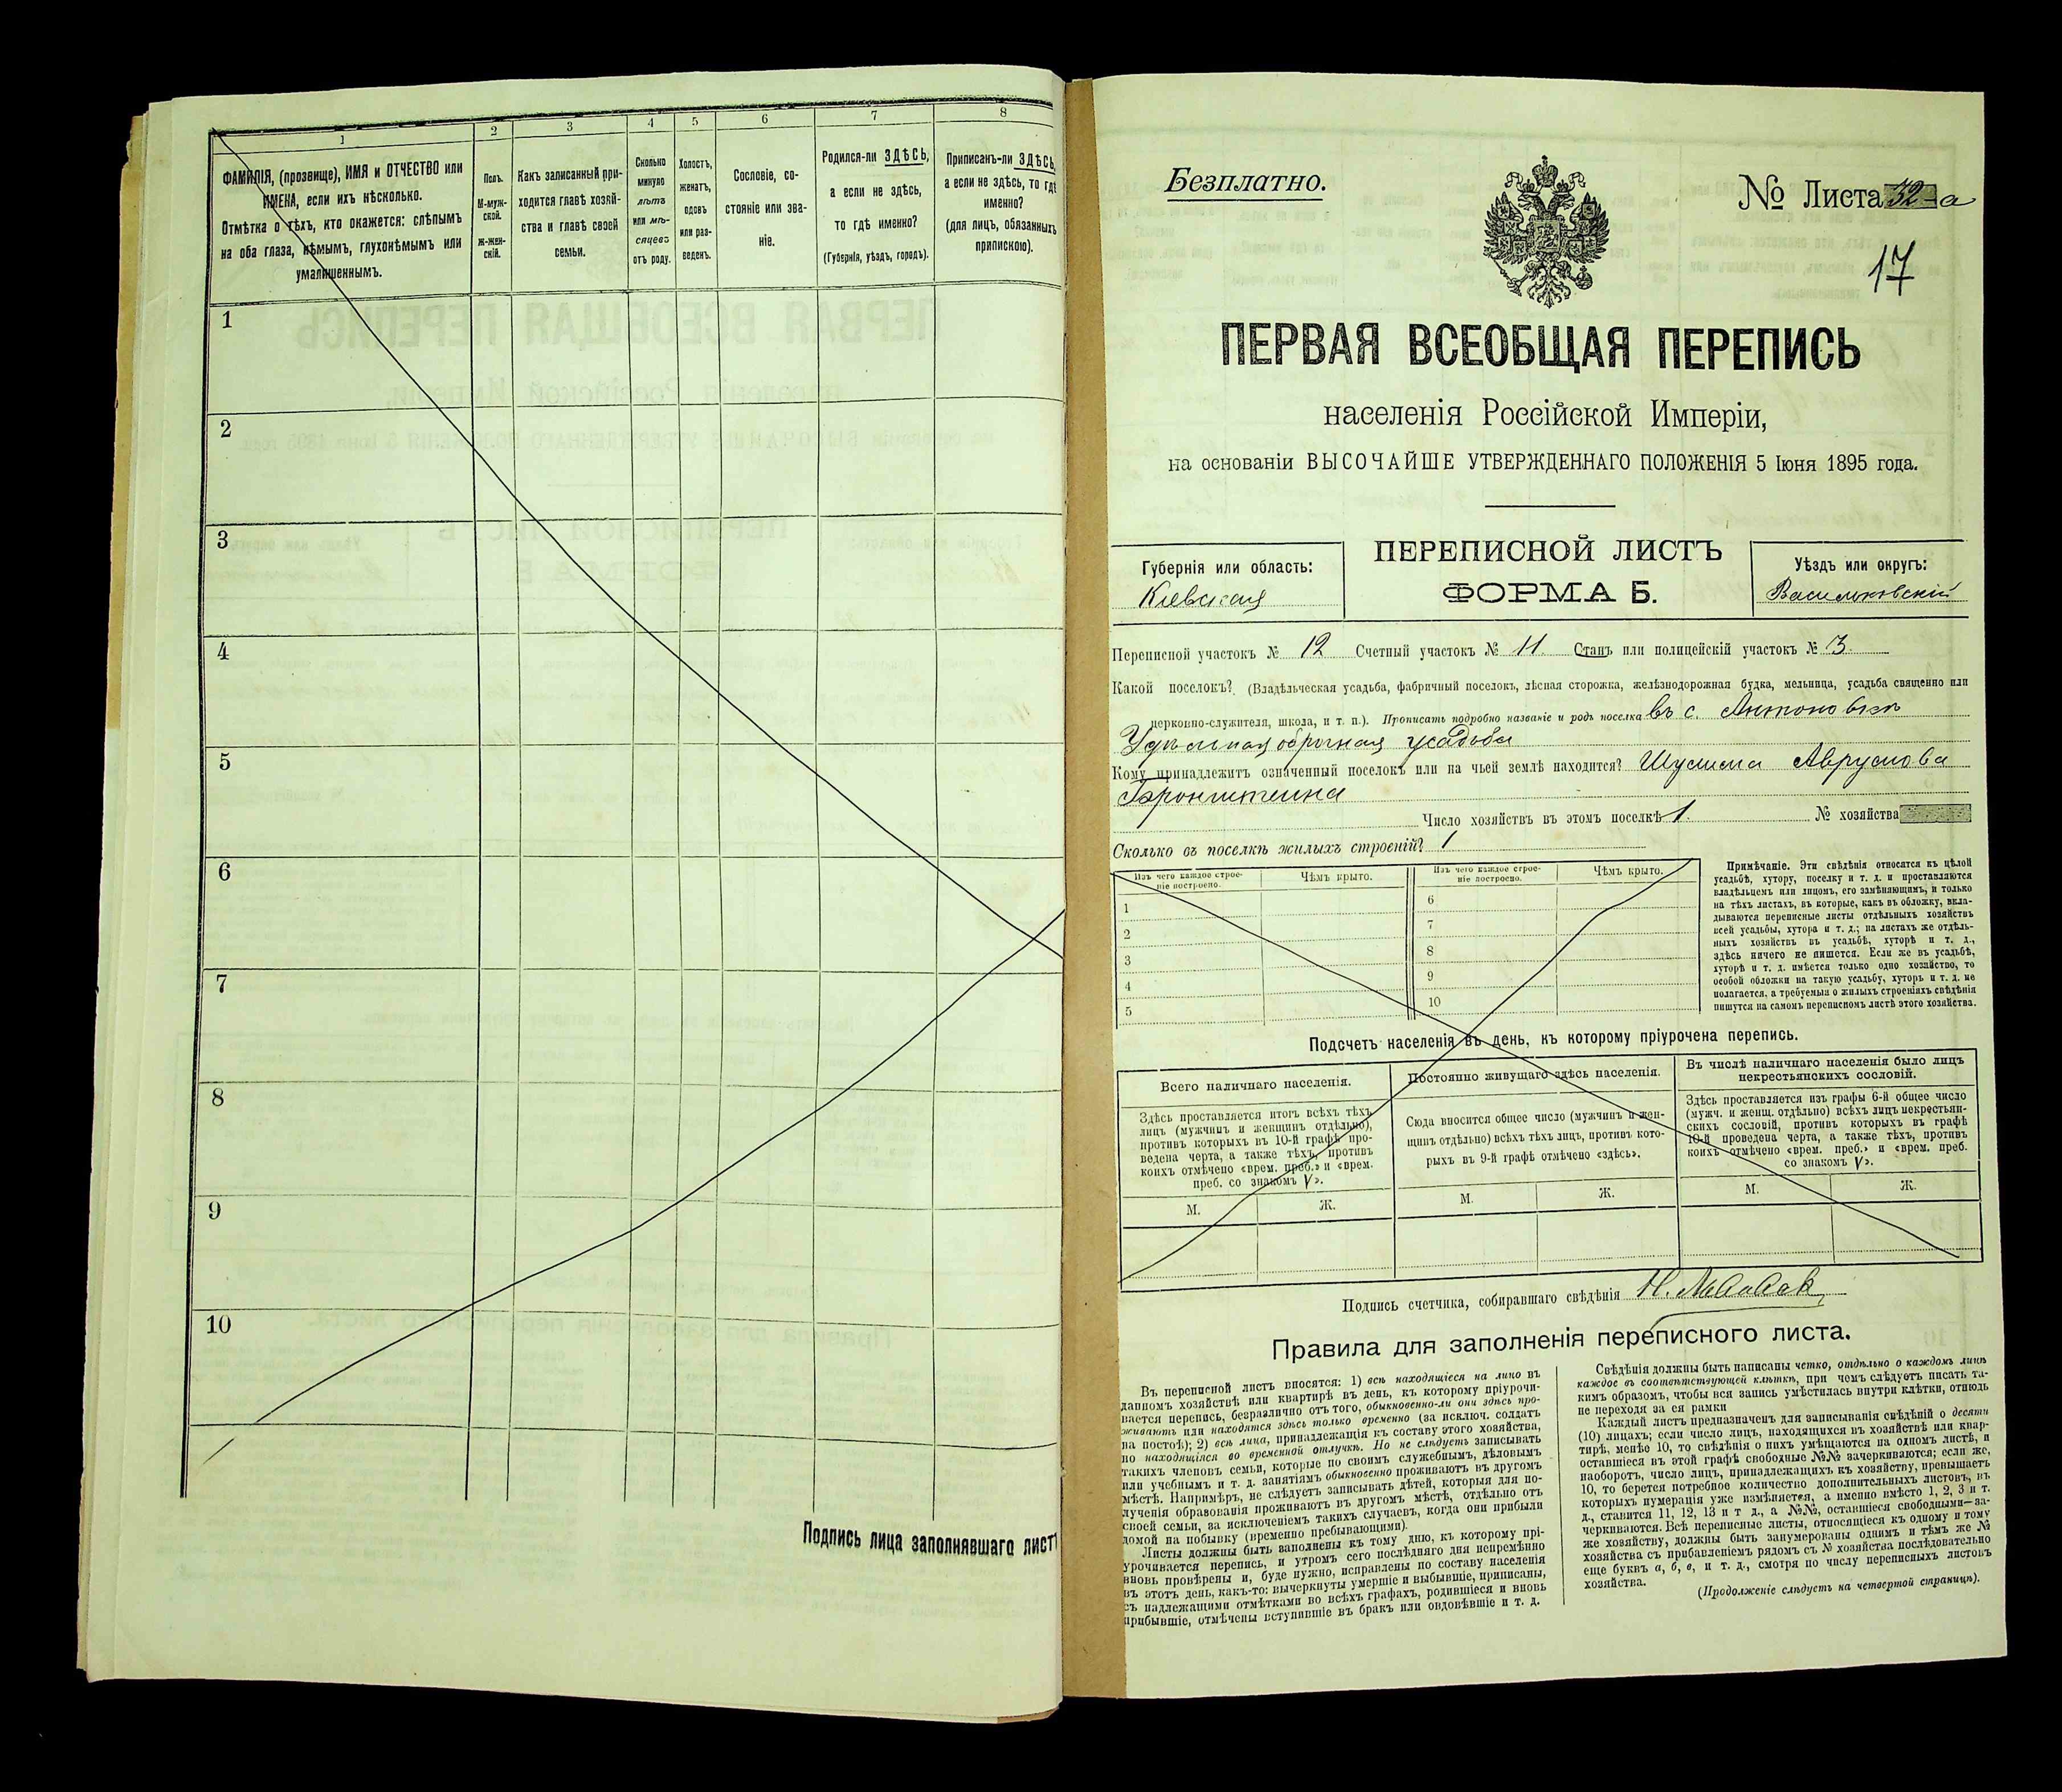 1
2
3
4
5
6
7
8
ФАМИЛІЯ, (прозвище), ИМЯ и ОТЧЕСТВО или
ИМЕНА, если ихъ нѣсколько.
Отмѣтка о тѣхъ, кто окажется: слѣпымъ
на оба глаза, нѣмымъ, глухонѣмымъ или
умалишеннымъ.
Полъ.
М-муж-
ской.
Ж-жен-
скій.
Какъ записанный при-
ходится главѣ хозяй-
ства и главѣ своей
семьи.
Сколько
минуло
лѣтъ
или мѣ-
сяцевъ
отъ роду.
Холостъ,
женатъ,
вдовъ
или раз-
веденъ.
Сословіе, со-
стояніе или зва-
ніе.
Родился-ли ЗДѢСЬ,
а если не здѣсь,
то гдѣ именно?
(Губернія, уѣздъ, городъ).
Приписанъ-ли ЗДѢСЬ,
а если не здѣсь, то гдѣ
именно?
(для лицъ, обязанныхъ
припискою).
1
2
3
4
5
6
7
8
9
10
Подпись лица заполнявшаго лист
Безплатно.
№ Листа 32-а
17
ПЕРВАЯ ВСЕОБЩАЯ ПЕРЕПИСЬ
населенія Россійской Имперіи,
на основаніи ВЫСОЧАЙШЕ УТВЕРЖДЕННАГО ПОЛОЖЕНІЯ 5 Іюня 1895 года.
Губернія или область:
Кіевская
ПЕРЕПИСНОЙ ЛИСТЪ
ФОРМА Б.
Уѣздъ или округъ:
Васильковскій
Переписной участокъ № 12 Счетный участокъ № 11. Станъ или полицейскій участокъ № 3.
Какой поселокъ? (Владѣльческая усадьба, фабричный поселокъ, лѣсная сторожка, желѣзнодорожная будка, мельница, усадьба священно или
церковно-служителя, школа, и т. п.). Прописать подробно названіе и родъ поселка въ с. Антоновкѣ
Удѣльная оброчная усадьба
Кому принадлежитъ означенный поселокъ или на чьей землѣ находится? Шулима Аврумова
Бронштейна
Число хозяйствъ въ этомъ поселкѣ 1. № хозяйства
Сколько въ поселкѣ жилыхъ строеній? 1
Изъ чего каждое строе-
ніе построено.
Чѣмъ крыто.
Изъ чего каждое строе-
ніе построено.
Чѣмъ крыто.
1
2
3
4
5
6
7
8
9
10
Примѣчаніе. Эти свѣдѣнія относятся къ цѣлой
усадьбѣ, хутору, поселку и т. д. и проставляются
владѣльцемъ или лицомъ, его замѣняющимъ, и только
на тѣхъ листахъ, въ которые, какъ въ обложку, вкла-
дываются переписные листы отдѣльныхъ хозяйствъ
всей усадьбы, хутора и т. д.; на листахъ же отдѣль-
ныхъ хозяйствъ въ усадьбѣ, хуторѣ и т. д.,
здѣсь ничего не пишется. Если же въ усадьбѣ,
хуторѣ и т. д. имѣется только одно хозяйство, то
особой обложки на такую усадьбу, хуторъ и т. д. не
полагается, а требуемыя о жилыхъ строеніяхъ свѣдѣнія
пишутся на самомъ переписномъ листѣ этого хозяйства.
Подсчетъ населенія въ день, къ которому пріурочена перепись.
Всего наличнаго населенія.
Здѣсь проставляется итогъ всѣхъ тѣхъ
лицъ (мужчинъ и женщинъ отдѣльно),
противъ которыхъ въ 10-й графѣ про-
ведена черта, а также тѣхъ, противъ
коихъ отмѣчено «врем. преб.» и «врем.
преб. со знакомъ V».
М.
Ж.
Постоянно живущаго здѣсь населенія.
Сюда вносится общее число (мужчинъ и жен-
щинъ отдѣльно) всѣхъ тѣхъ лицъ, противъ кото-
рыхъ въ 9-й графѣ отмѣчено «здѣсь».
М.
Ж.
Въ числѣ наличнаго населенія было лицъ
некрестьянскихъ сословій.
Здѣсь проставляется изъ графы 6-й общее число
(мужч. и женщ. отдѣльно) всѣхъ лицъ некрестьян-
скихъ сословій, противъ которыхъ въ графѣ
10-й проведена черта, а также тѣхъ, противъ
коихъ отмѣчено «врем. преб.» и «врем. преб.
со знакомъ V».
М.
Ж.
Подпись счетчика, собиравшаго свѣдѣнія Н.
Правила для заполненія переписного листа.
Въ переписной листъ вносятся: 1) всѣ находящіеся на лицо въ
данномъ хозяйствѣ или квартирѣ въ день, къ которому пріурочи-
вается перепись, безразлично отъ того, обыкновенно-ли они здѣсь про-
живаютъ или находятся здѣсь только временно (за исключ. солдатъ
на постоѣ); 2) всѣ лица, принадлежащія къ составу этого хозяйства,
но находящіяся во временной отлучкѣ. Но не слѣдуетъ записывать
такихъ членовъ семьи, которые по своимъ служебнымъ, дѣловымъ
или учебнымъ и т. д. занятіямъ обыкновенно проживаютъ въ другомъ
мѣстѣ. Напримѣръ, не слѣдуетъ записывать дѣтей, которыя для по-
лученія образованія проживаютъ въ другомъ мѣстѣ, отдѣльно отъ
своей семьи, за исключеніемъ такихъ случаевъ, когда они прибыли
домой на побывку (временно пребывающими).
Листы должны быть заполнены къ тому дню, къ которому прі-
урочивается перепись, и утромъ сего послѣдняго дня непремѣнно
вновь провѣрены и, буде нужно, исправлены по составу населенія
въ этотъ день, какъ-то: вычеркнуты умершіе и выбывшіе, приписаны,
съ надлежащими отмѣтками во всѣхъ графахъ, родившіеся и вновь
прибывшіе, отмѣчены вступившіе въ бракъ или овдовѣвшіе и т. д.
Свѣдѣнія должны быть написаны четко, отдѣльно о каждомъ лицѣ
каждое въ соотвѣтствующей клѣткѣ, при чемъ слѣдуетъ писать та-
кимъ образомъ, чтобы вся запись умѣстилась внутри клѣтки, отнюдь
не переходя за ея рамки
Каждый листъ предназначенъ для записыванія свѣдѣній о десяти
(10) лицахъ; если число лицъ, находящихся въ хозяйствѣ или квар-
тирѣ, менѣе 10, то свѣдѣнія о нихъ умѣщаются на одномъ листѣ, и
оставшіеся въ этой графѣ свободные №№ зачеркиваются; если же,
наоборотъ, число лицъ, принадлежащихъ къ хозяйству, превышаетъ
10, то берется потребное количество дополнительныхъ листовъ, въ
которыхъ нумерація уже измѣняется, а именно вмѣсто 1, 2, 3 и т.
д., ставится 11, 12, 13 и т д., а №№, оставшіеся свободными—за-
черкиваются. Всѣ переписные листы, относящіеся къ одному и тому
же хозяйству, должны быть занумерованы однимъ и тѣмъ же №
хозяйства съ прибавленіемъ рядомъ съ № хозяйства послѣдовательно
еще буквъ а, б, в, и т. д., смотря по числу переписныхъ листовъ
хозяйства.
(Продолженіе слѣдуетъ на четвертой страницѣ).